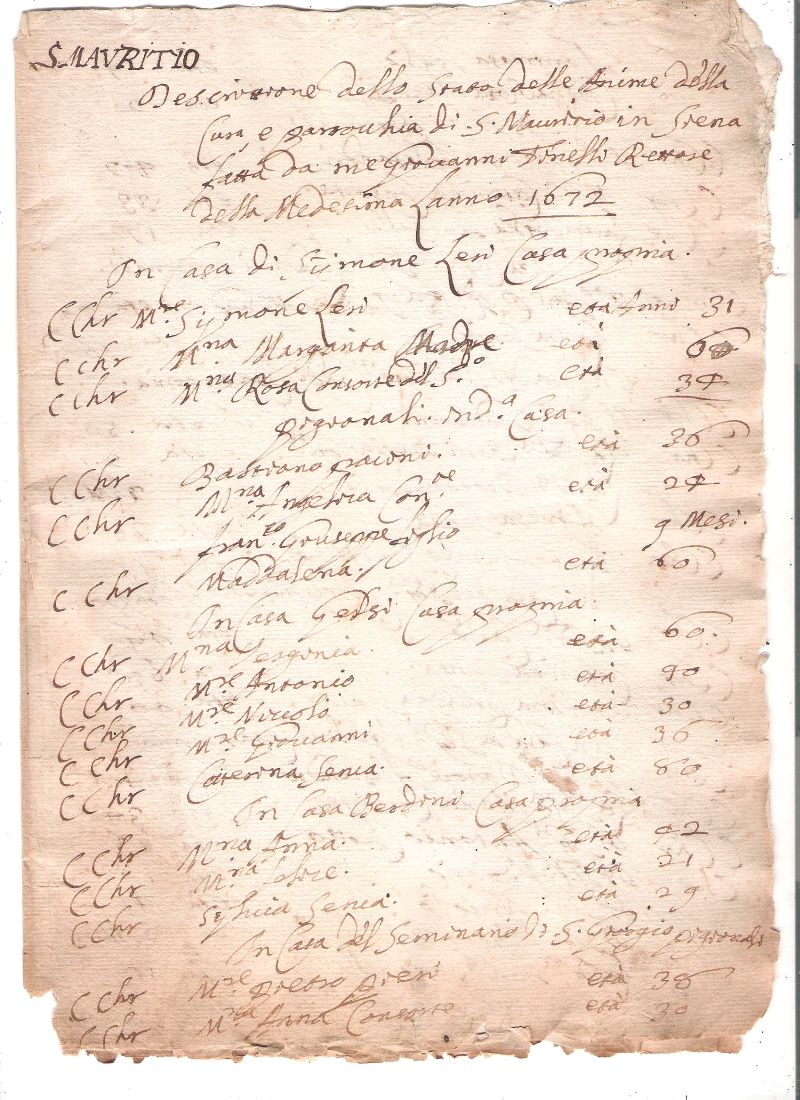 S. MAVRITIO
Descrizione dello Stato delle Anime della
Cura e parrochia di S. Mauritio in Siena
fatta da me Giovanni Rettore
della Medesima Lanno 1672
In Casa di Simone Leri Casa propria.
C Chr M.re Simone Leri età Anni 31
C Chr M.na Margarita Madre età
C Chr M.na Rosa Consorte del S.o età 34
pigionali. in d.a Casa.
C Chr Bastiano pacini. età 36
C Chr M.na Angelica Con.te età 24
Fran.co Giuseppe figlio 9 Mesi.
C Chr Maddalena. età 60
In Casa Casa propria.
C Chr M.na età 60.
C Chr M.re Antonio età 40
C Chr M.re Niccolò età 30
C Chr M.re Giovanni età 36
C Chr Caterina Serva. età 80
In Casa Berdini Casa propria
C Chr M.na Anna. età 42
C Chr M.na età 21
C Chr Silvia Serva. età 29
In Casa del Seminario di S. Giorgio pigionali
C Chr M.re Pietro Pieri età 38
C Chr M.na Anna Consorte età 30